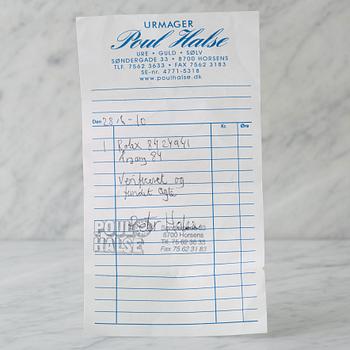 URMAGER
Poul Halse
URE • GULD • SØLV
SØNDERGADE 33 • 8700 HORSENS
TLF. 7562 3633 • FAX 7562 3183
SE-nr. 4771-5318
www.poulhalse.dk
Den 28/6-10
Kr. Øre
1 Rolex 8424941
Årgang 84
Verificeret og
fundet ægte
POUL
HALSE
8700 Horsens
Tlf. 75 62 36 33
Fax 75 62 31 83